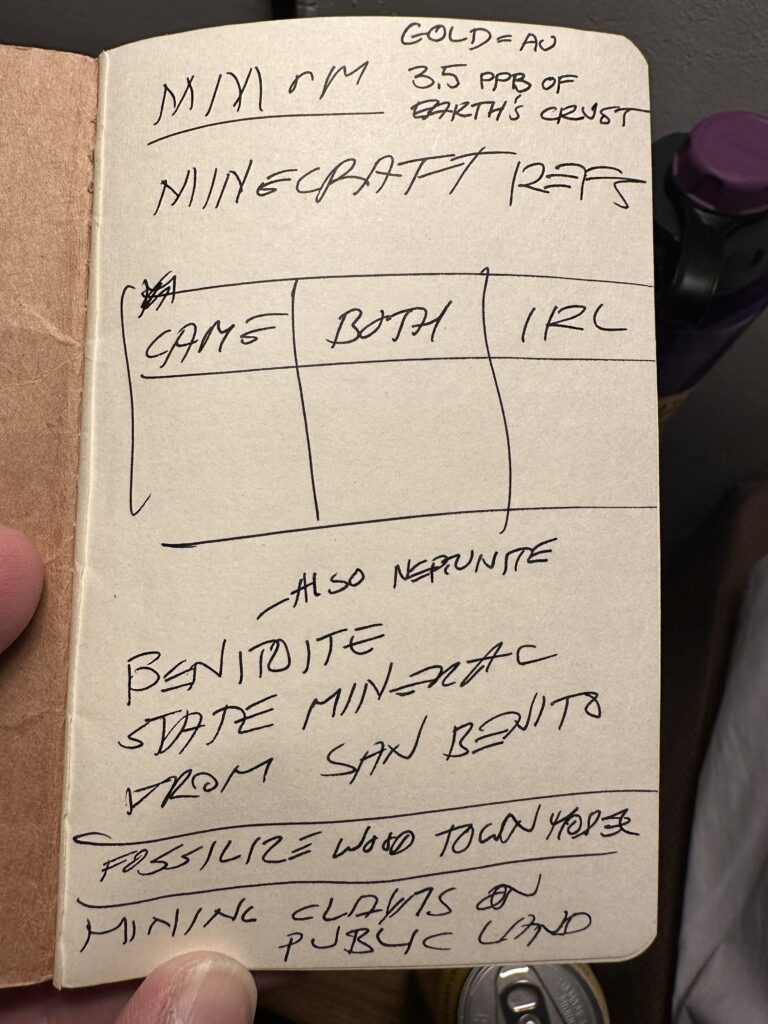 GOLD = AU
3.5 PPB OF
EARTH'S CRUST
MINECRAFT REFS
GAME BOTH IRL
ALSO NEPTUNITE
BENITOITE
STATE MINERAL
FROM SAN BENITO
FOSSILIZE WOOD TOWN
MINING CLAIMS ON
PUBLIC LAND